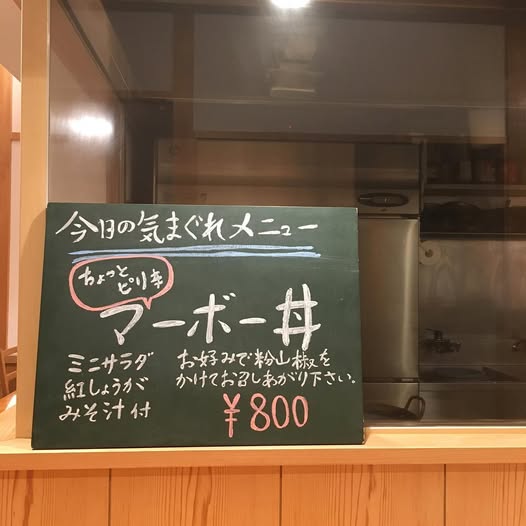 今日の気まぐれメニュー
ちょっと
ピリ辛
マーボー丼
ミニサラダ
紅しょうが
みそ汁付
お好みで粉山椒を
かけてお召しあがり下さい。
¥800